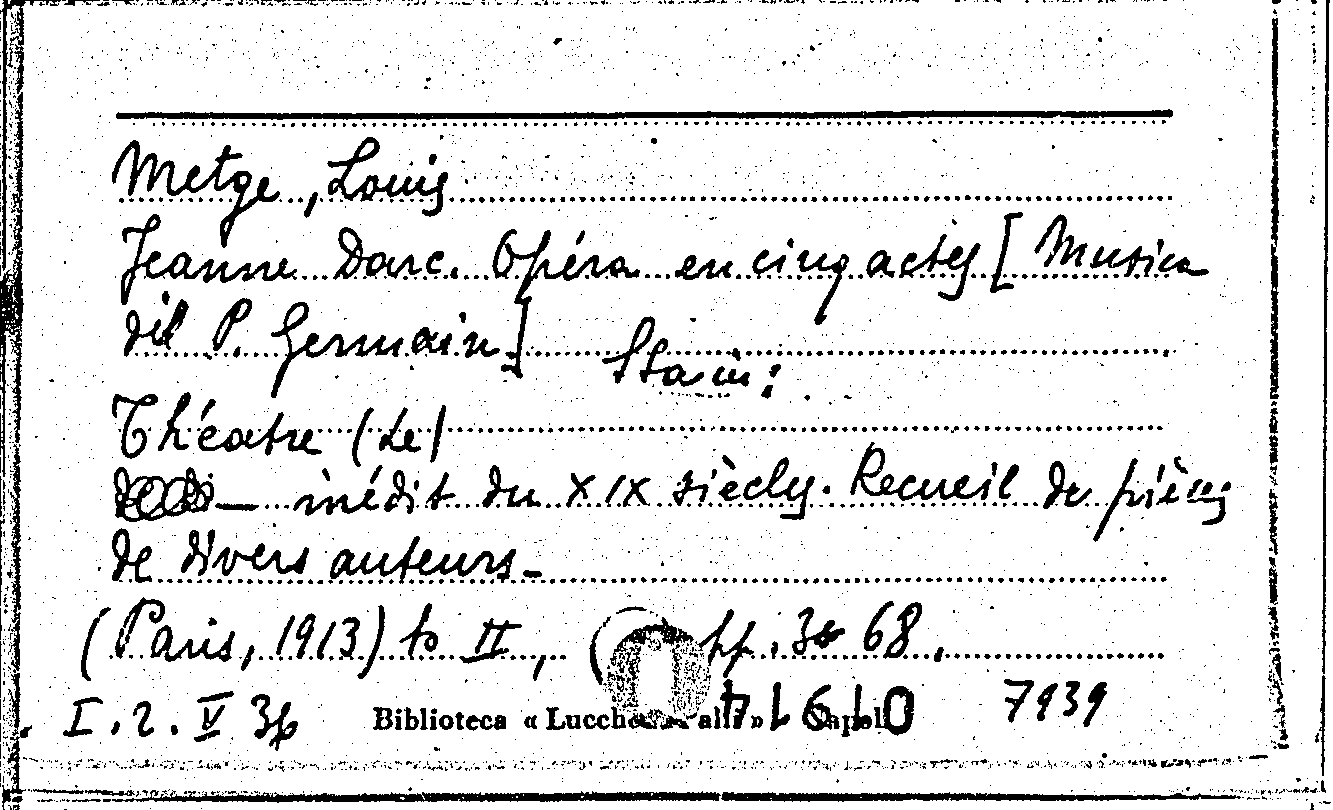 Metge, Louis
Jeanne Darc. Opéra en cinq actes [Musica
del P. Germain]
Sta in:
Théatre (Le)
— inédit du XIX siècles. Recueil de pièces
de divers auteurs -
(Paris, 1913) to II, ( pp. 68.
I.2.V 36
Biblioteca « »
71610
7939